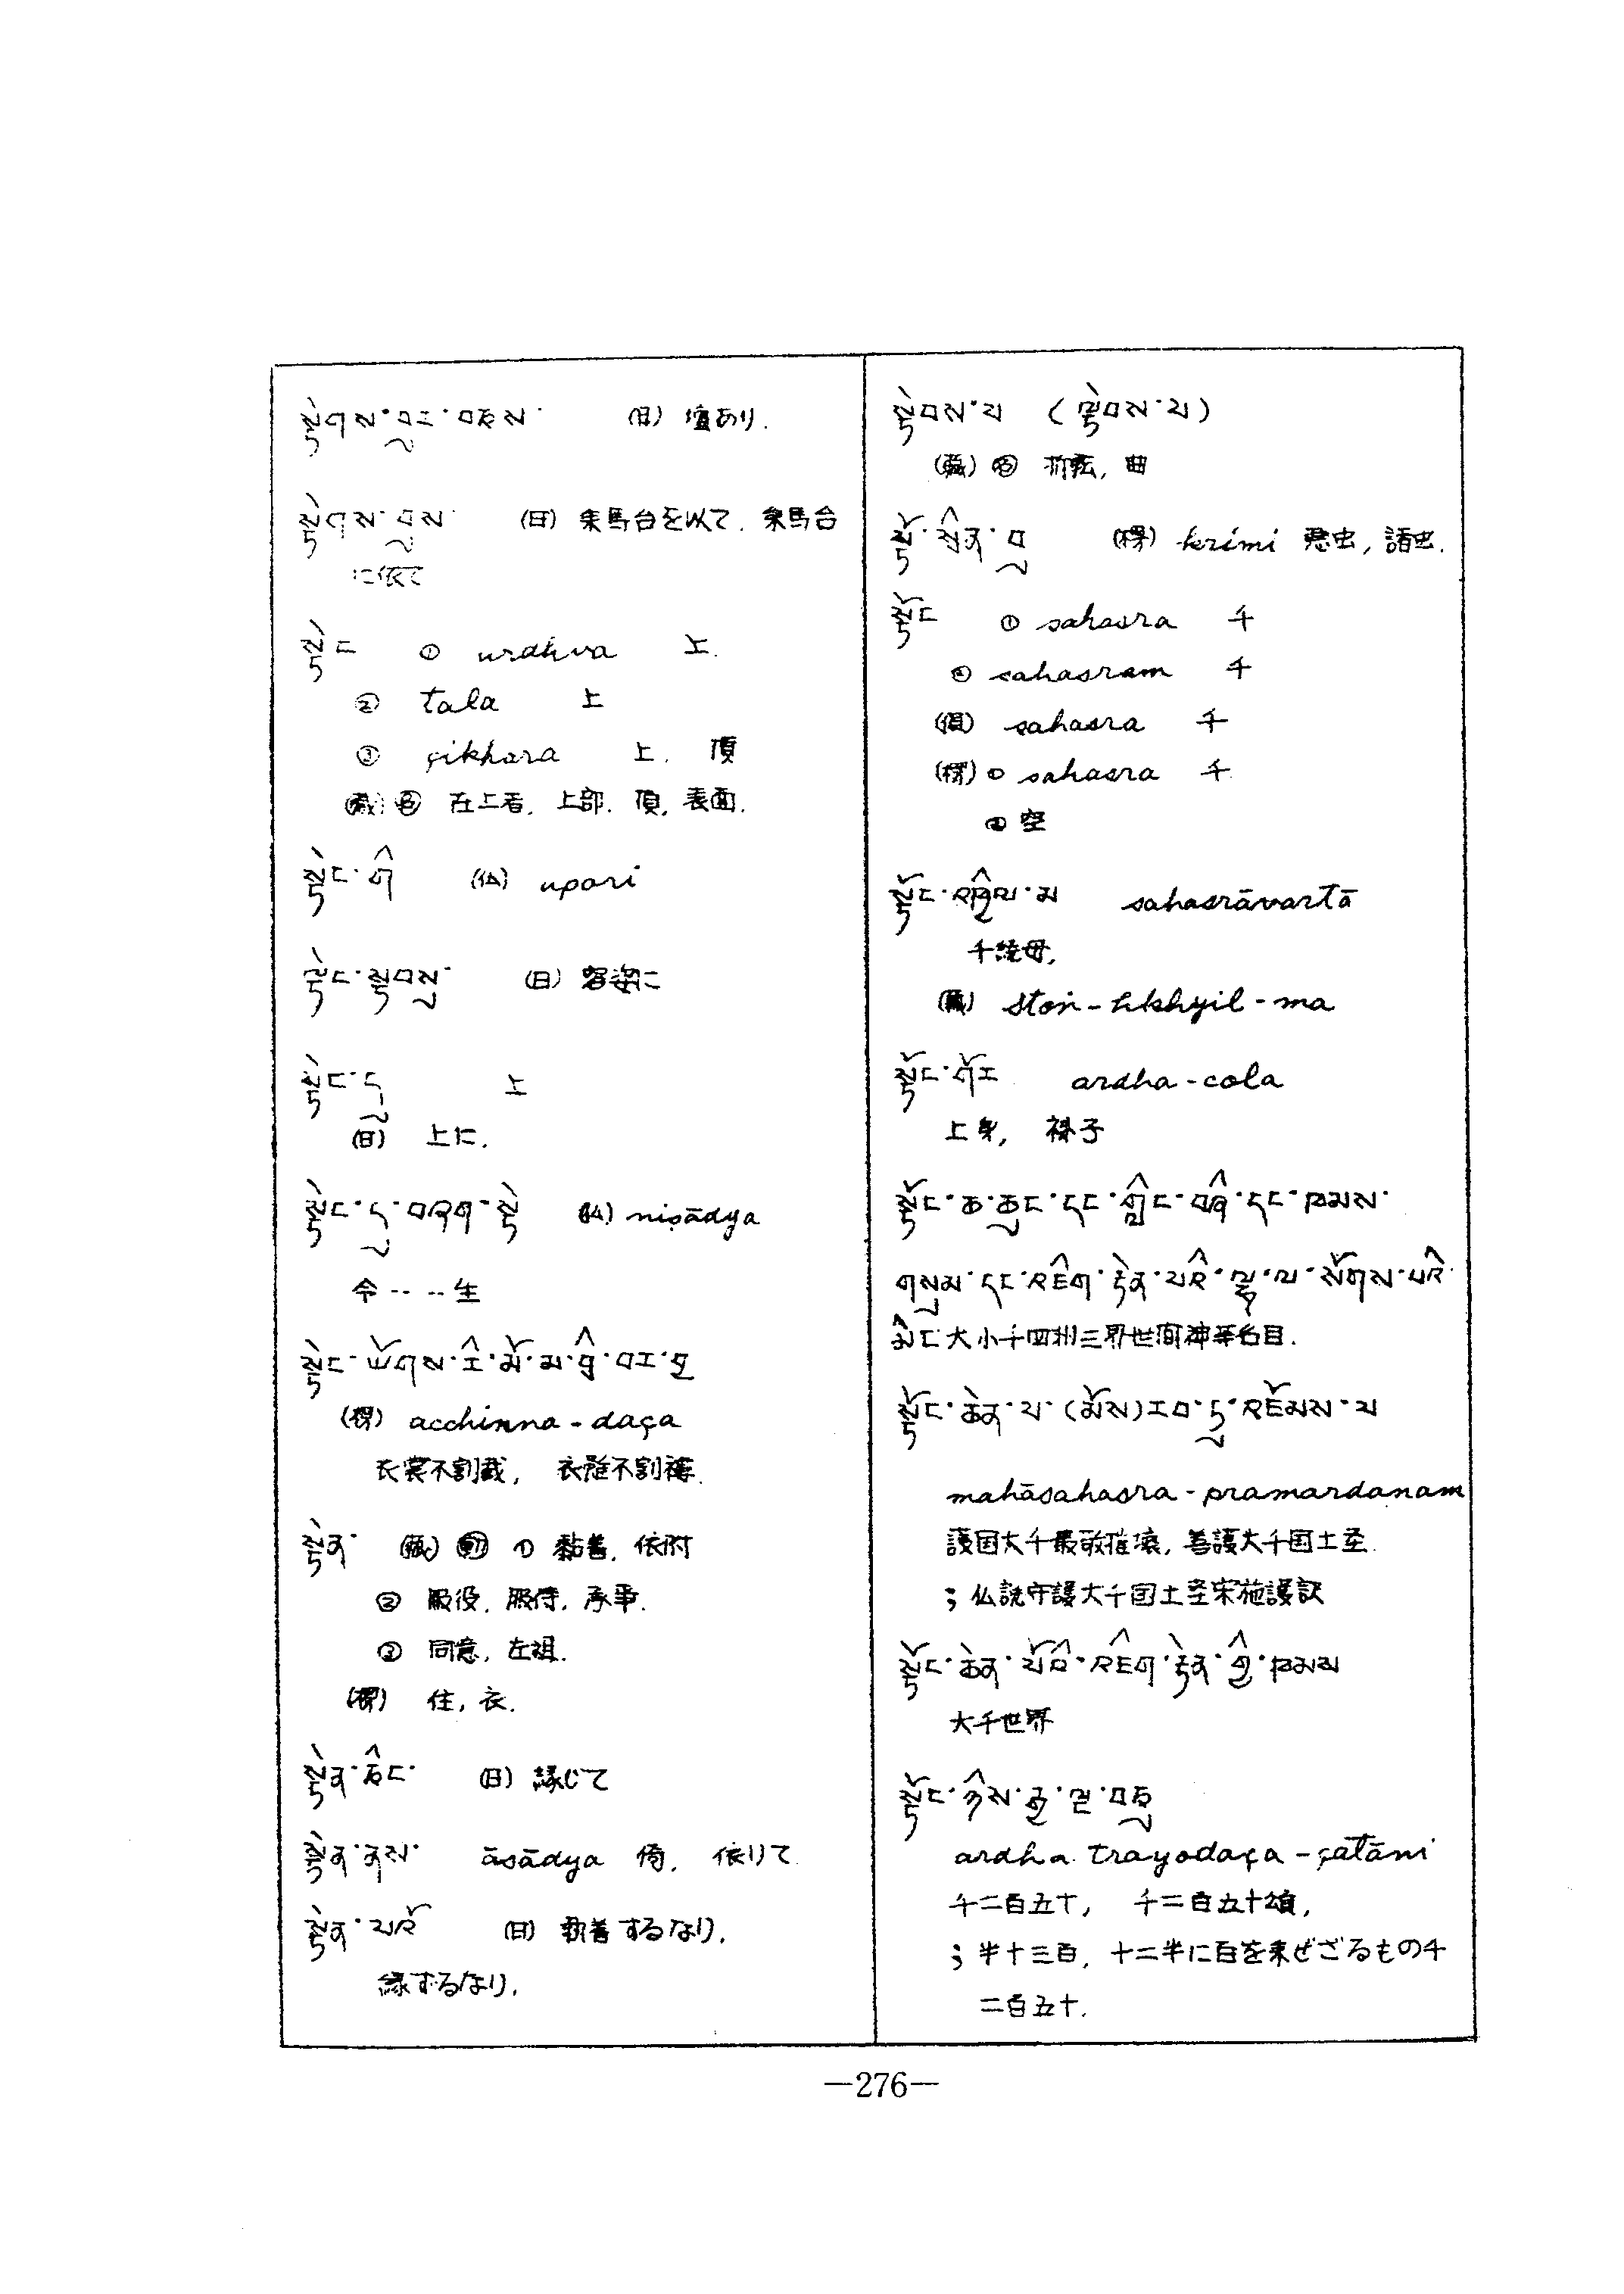 སྟེགས་བུར་བཅས་ (日) 壇あり.
སྟེགས་བུས་ (日) 乗馬台を以て. 乗馬台
に依て
སྟེང ① urdhva 上.
② tala 上
③ çikhara 上. 頂
(蔵) 名 在上者. 上部. 頂. 表面.
སྟེང་གི (仏) upari
སྟེང་སྟབས་ (日) 容姿に
སྟེང་དུ 上
(日) 上に.
སྟེང་དུ་བཞག་སྟེ (仏) niṣādya
令‥‥生
སྟེང་ཡོགས་རི་མོ་མ་བྲི་བར་བྱ
(梵) acchinna-daça
衣裳不割截, 衣離不割
སྟེན་ (蔵) 動 ① 黏着. 依附
② 服役. 服侍. 承事.
③ 同意, 左袒.
(梵) 住, 衣.
སྟེན་ཅིང་ (日) 縁じて
སྟེན་ནས་ āsādya 倚. 依りて
སྟེན་པའོ (日) 執着するなり.
縁ずるなり.
སྟེབས་པ (ལྟེབས་པ)
(蔵) 名 折転, 曲
སྟོ་སྲིན་བུ (梵) krimi 悪虫, 諸虫.
སྟོང ① sahasra 千
② sahasram 千
sahasra 千
(梵) ① sahasra 千
② 空
སྟོང་འཁྱིལ་མ sahasrāvartā
千繞母.
(蔵) stoṅ-ḣkhyil-ma
སྟོང་གོར ardha-cola
上身, 子
སྟོང་ཆ་ཆུང་དང་གླིང་བཞི་དང་ཁམས་
གསུམ་དང་འཇིག་རྟེན་པའི་ལྷ་ལ་སོགས་པའི་
མིང་大小千四州三界世間神等名目.
སྟོང་ཆེན་པ་(མོས)རབ་ཏུ་འཇོམས་པ
mahāsahasra-pramardanam
護国大千最敵摧壊, 善護大千国土圣.
; 仏説守護大千国土圣宋施護訳
སྟོང་ཆེན་པོའི་འཇིག་རྟེན་གྱི་ཁམས
大千世界
སྟོང་ཉིས་རྒྱ་ལྔ་བཅུ
ardha trayodaça-çatāni
千二百五十, 千二百五十頌,
; 半十三百, 十二半に百を乗ぜざるもの千
二百五十.
—276—